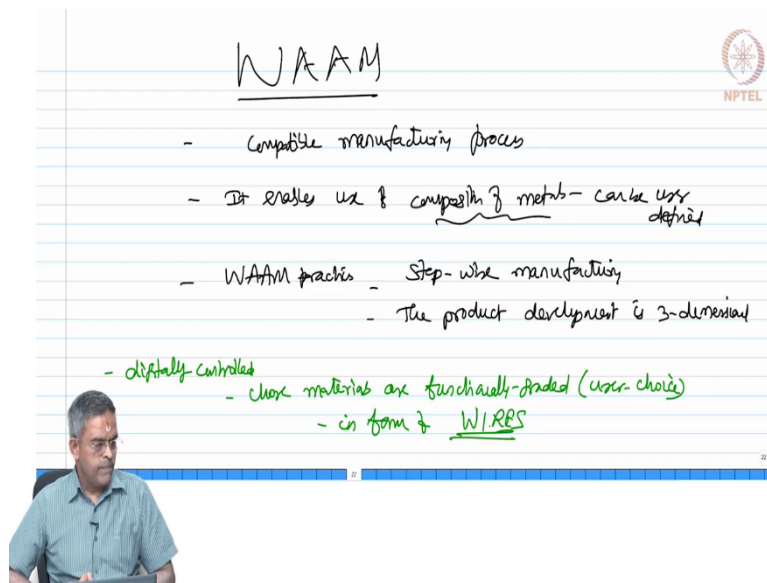 WAAM
NPTEL
- Compatible manufacturing process
- It enables use of composition of metals - can be user
defined
- WAAM practices - Step-wise manufacturing
- The product development is 3-dimensional
- digitally controlled
- chose materials are functionally-graded (user-choice)
- in form of WIRES
22
22